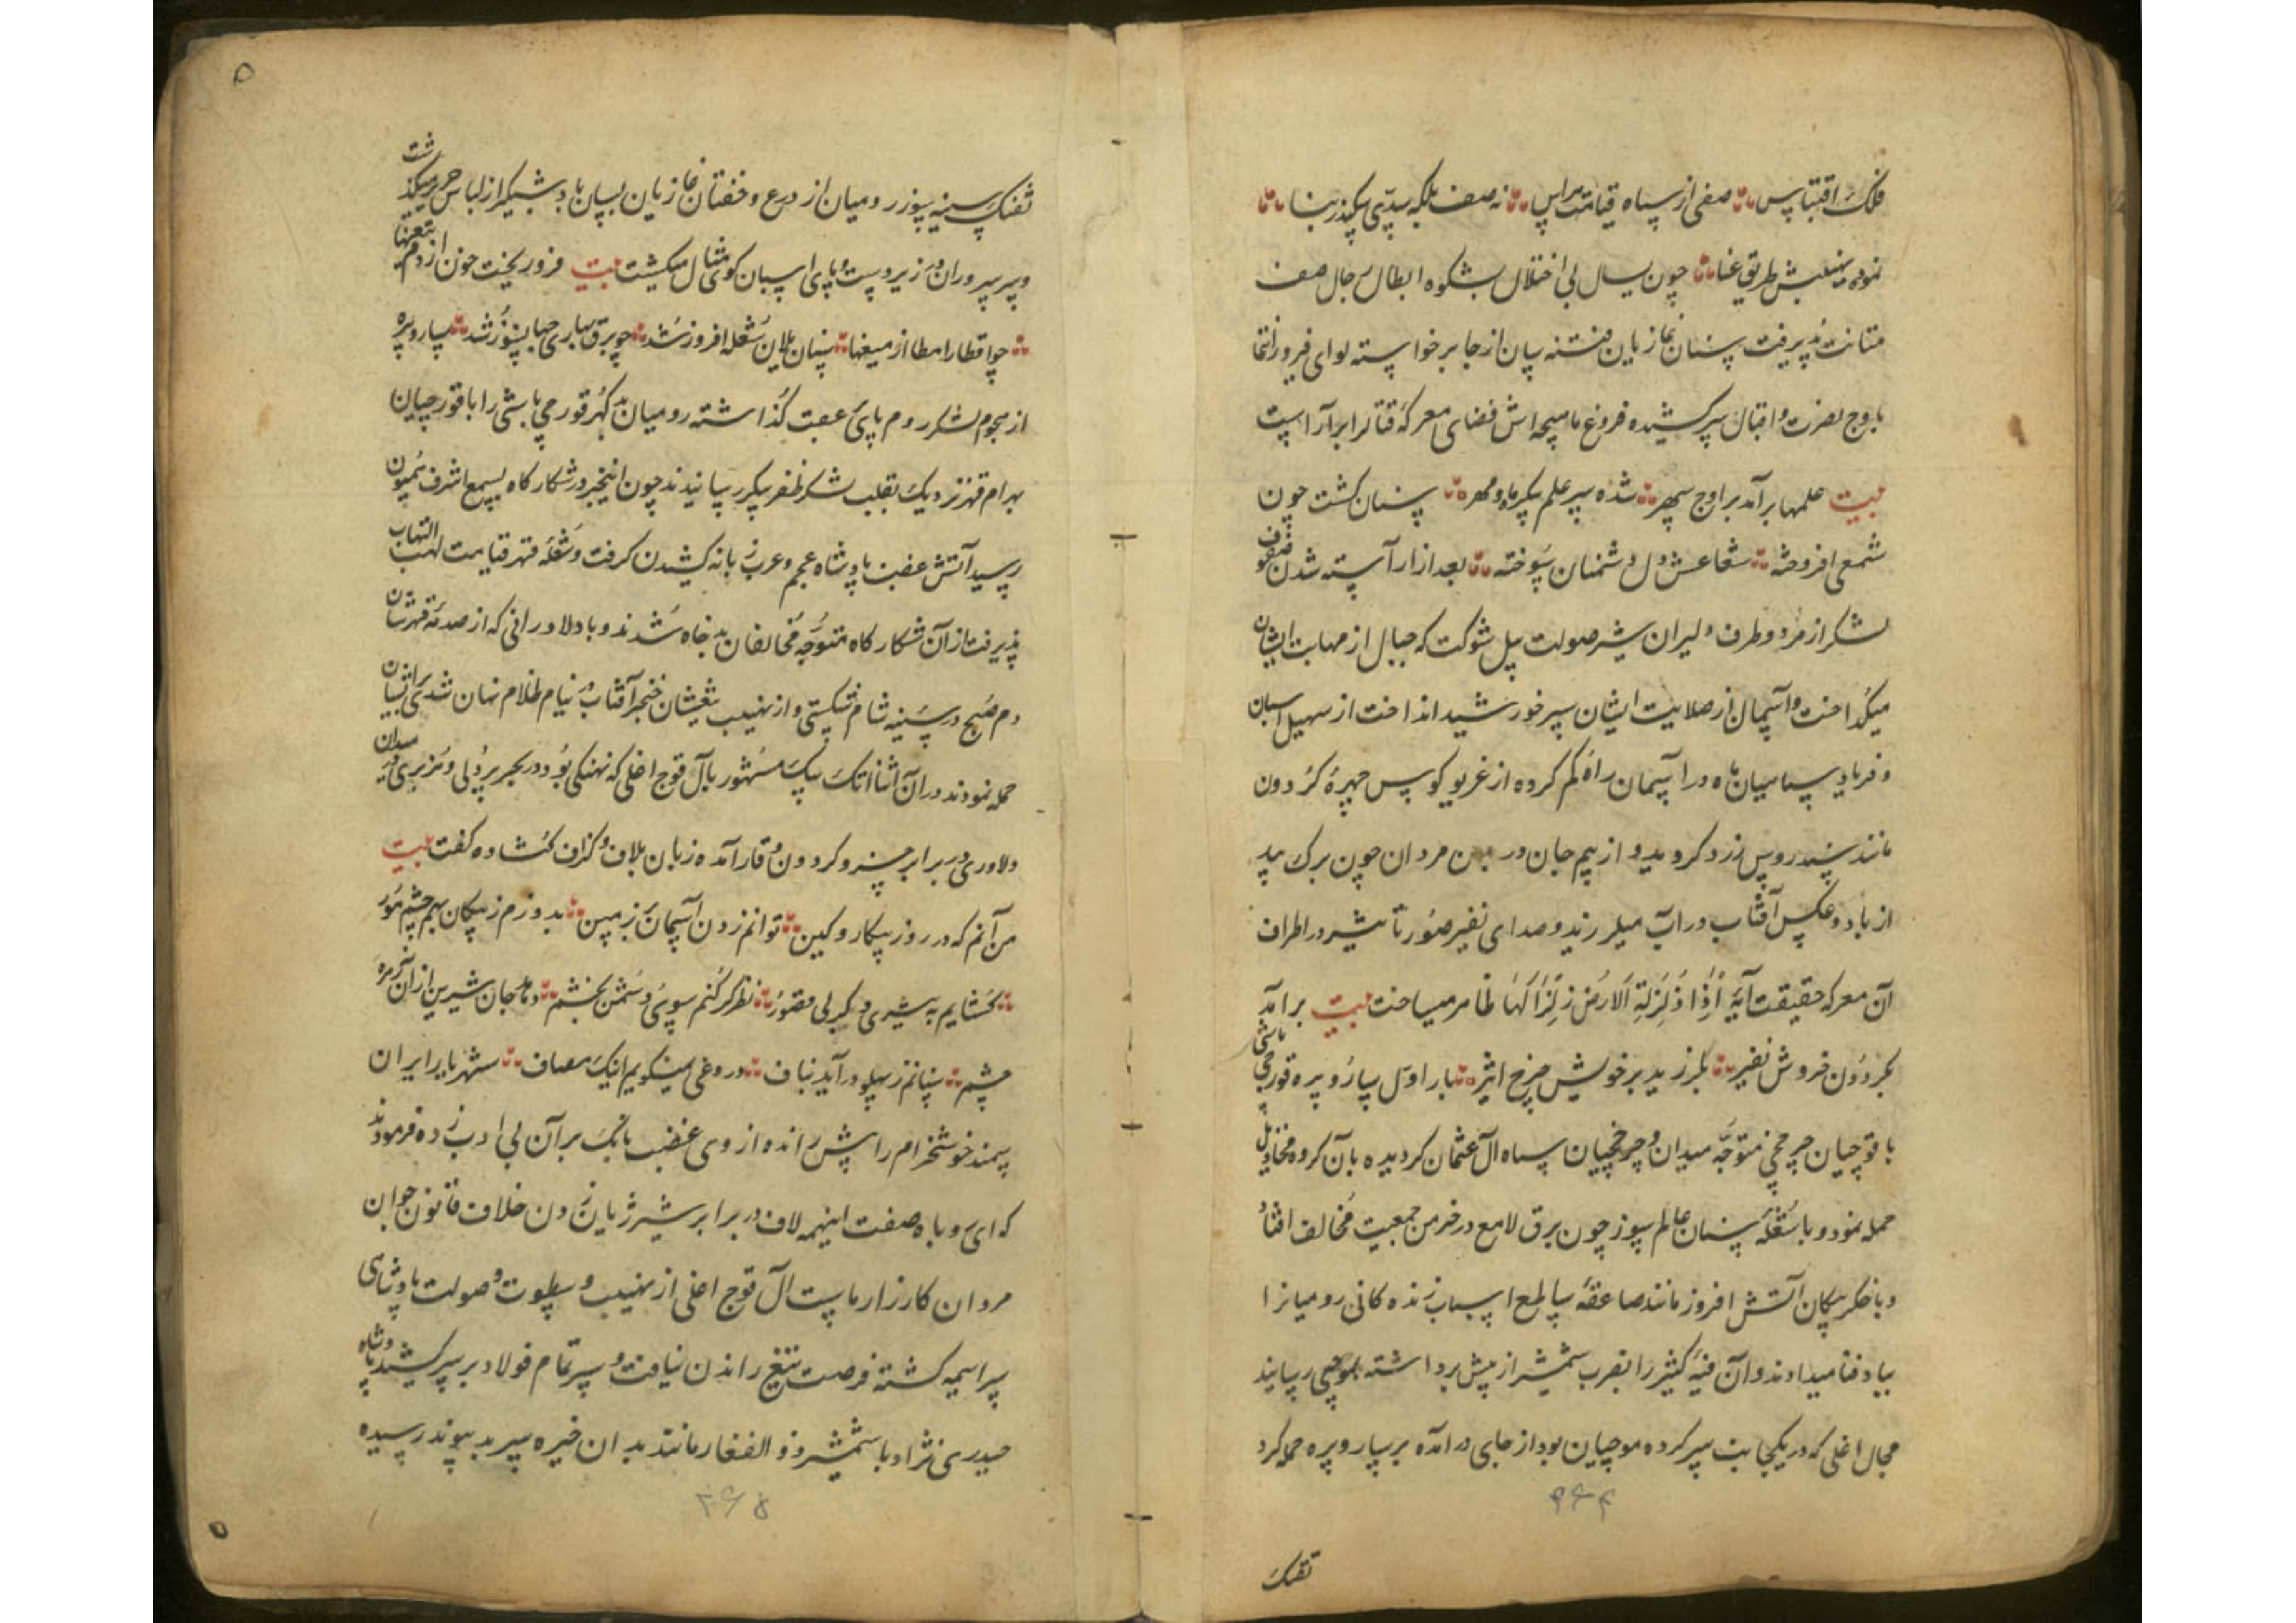 فلک اقتباس صفی از سپاه قیامت هراس نه صف بلکه سدّی سکندر بنا
نموده بهیبتش طریق عنا چون سیال بی اختلال بشکوه ابطال رجال صف
متانت پذیرفت سنان غازیان فتنه سان از جا برخواسته لوای فیروز انتما
باوج نصرت و اقبال سر کشیده فروغ ماهیچه اش فضای معرکهٔ قتال را برآراست
بیت علمها برآمد براوج سپهر شده سر علم پیکر ماه و مهر سنان گشت چون
شمعی افروخته شعاعش دل دشمنان سوخته بعد از آراسته شدن صفوف
لشکر از هر دو طرف دلیران شیر صولت پیل شوکت که جبال از مهابت ایشان
میگداخت و آسمان از صلابت ایشان سپر خورشید انداخت از سهیل اسبان
و فریاد سپاهیان ماه در آسمان راه گم کرده از غریو کوس چهرهٔ گردون
مانند سندروس زرد گردید و از بیم جان در بدن مردان چون برک بید
از باد و عکس آفتاب در آب میلرزید و صدای نفیر صور تأثیر در اطراف
آن معرکه حقیقت آیهٔ اِذا زُلزِلَةِ اَلارضُ زِلزَالَهَا ظاهر میساخت بیت برآمد
بگردون خروش نفیر بلرزید بر خویش چرخ اثیر بار اول سارو پیره قورچی باشی
با قوچیان چرخچی متوجّه میدان و چرخچیان سپاه آل عثمان گردیده بآن گروه مخاذیل
حمله نمود و با شعلهٔ سنان عالم سوز چون برق لامع در خرمن جمعیت مخالف افتاد
و باخگر پیکان آتش افروز مانند صاعقهٔ ساطع اسباب زنده کانی رومیانرا
بباد فنا میدادند و آن فیهٔ کثیر را بضرب شمشیر از پیش برداشته بموچی رسانید
مجال اغلی که در یکجانب سر کرده موچیان بود از جای درآمده بر سارو پیره حمله کرد
۴۶۴
تفنک
۵
تفنک سینه سوز رومیان از درع و خفتان غازیان بسان باد شبگیر از لباس حریر میگذشت
و سر سروران در زیر دست و پای اسبان کوی مثال میگشت بیت فرو ریخت خون از دم تیغها
چو اقطار امطار از میغها سنان یلان شعله افروز شد چو برق بهاری جهانسوز شد سارو پیره
از هجوم لشکر روم پای عقب گذاشته رومیان بد گهر قورچی باشی را با قورچیان
بهرام قهر نزدیک بقلب لشکر ظفر پیکر رسانیدند چون اینخبر در شکارکاه بسمع اشرف همیون
رسید آتش غضب پادشاه عجم و عرب زبانه کشیدن گرفت و شعلهٔ قهر قیامت لهب التهاب
پذیرفت از آن شکار کاه متوجّه مخالفان بد خاه شدند و با دلاورانی که از صدمهٔ قهرشان
دم صبح در سینه شام شکستی و از نهیب تیغشان خنجر آفتاب در نیام ظلام نهان شدی
حمله نمودند در آن اثنا اتک بیک مشهور بآل قوج اغلی که نهنگی بود در بحر پر دلی و هزبری در میدان
دلاوری در برابر خسرو گردون وقار آمده زبان بلاف و گزاف گشاده گفت بیت
من آنم که در روز پیکار و کین توانم زدن آسمان بر زمین بدوزم ز پیکان بهم چشم مور
گشایم به شیری دگر بی قصور نظر گر کنم سوی دشمن بخشم دهد جان شیرین از آن زهره
چشم سنانم ز پهلو درآید بناف دروغی نمیگویم اینک مصاف شهریار ایران
سمند خوشخرام را پیش رانده از روی غضب بانک بر آن بی ادب زده فرمودند
که ای روباه صفت اینهمه لاف در برابر شیر ژیان زدن خلاف قانون جوان
مردان کارزار ماست آل قوج اغلی از نهیب و سطوت و صولت پادشاهی
سراسیمه گشته فرصت تیغ راندن نیافت و سپر تمام فولاد بر سر کشید پادشاه
حیدری نژاد با شمشیر ذو الفقار مانند بدان خیره سر بد پیوند رسیده
۴۶۵